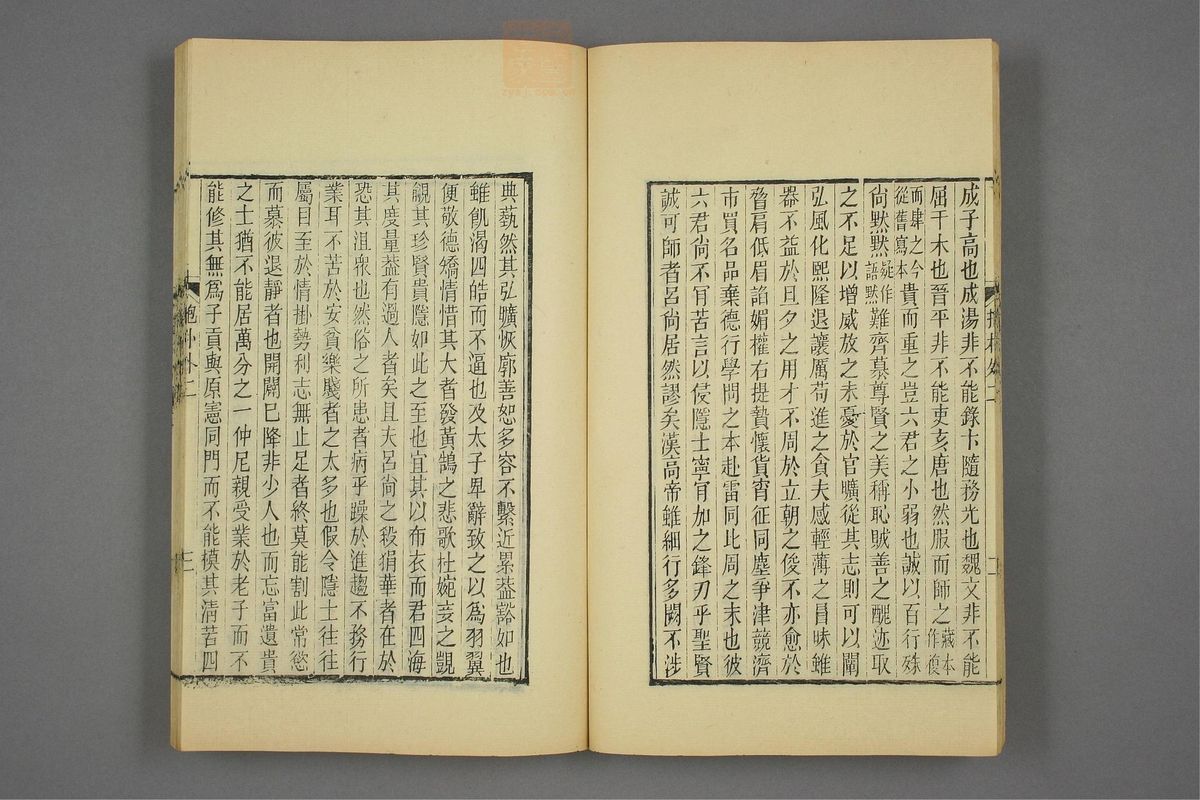 成子高也成湯非不能錄卞隨務光也魏文非不能
屈干木也晉平非不能吏亥唐也然服而師之藏本作復
而肆之今從舊寫本貴而重之豈六君之小弱也誠以百行殊
尚默默疑作語默難齊慕尊賢之美稱恥賊善之醜迹取
之不足以增威放之未憂於官曠從其志則可以闡
弘風化熙隆退讓厲苟進之貪夫感輕薄之冒昧雖
器不益於旦夕之用才不周於立朝之俊不亦愈於
脅肩低眉諂媚權右提贄懷貨宵征同塵爭津競濟
市買名品棄德行學問之本赴雷同比周之末也彼
六君尚不肎苦言以侵隱士寧肎加之鋒刃乎聖賢
誠可師者呂尚居然謬矣漢高帝雖細行多闕不涉
典藝然其弘曠恢廓善恕多容不繫近累葢豁如也
雖飢渴四皓而不逼也及太子卑辭致之以爲羽翼
便敬德矯情惜其大者發黃鵠之悲歌杜婉妾之覬
覦其珍賢貴隱如此之至也宜其以布衣而君四海
其度量葢有過人者矣且夫呂尚之殺狷華者在於
恐其沮衆也然俗之所患者病乎躁於進趨不務行
業耳不苦於安貧樂賤者之太多也假令隱士往往
屬目至於情掛勢利志無止足者終莫能割此常慾
而慕彼退靜者也開闢已降非少人也而忘富遺貴
之士猶不能居萬分之一仲尼親受業於老子而不
能修其無爲子貢與原憲同門而不能模其清苦四
抱朴外二
三